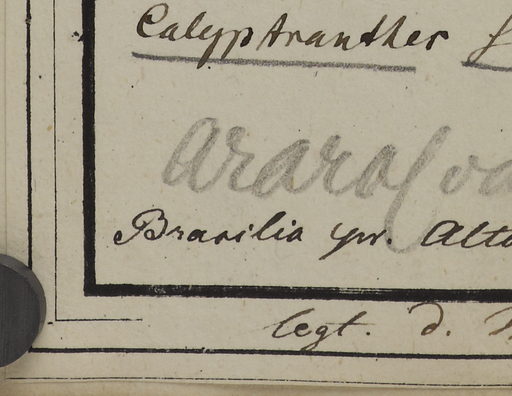 Calyptranthes f
araro
Brasilia pr. Alto
legt. d.